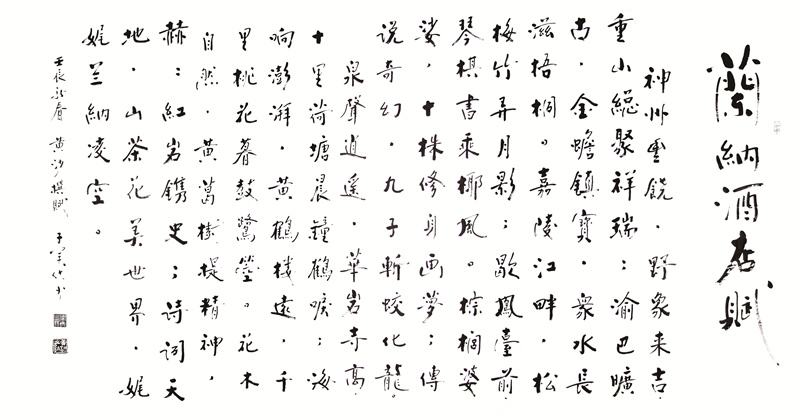 蘭納酒店賦
神州豐饒，野象来吉，
重山緦聚祥瑞；渝巴曠
古，金蟾鎮寳，衆水長
滋梧桐。嘉陵江畔，松
梅竹弄月影；歇鳳臺前，
琴棋書乘椰風。棕櫚婆
娑，十株修身画夢；傳
说奇幻，九子斬蛟化龍。
泉聲逍遥，華岩寺高，
十里荷塘晨鐘鶴唳；海
响澎湃，黄鶴楼遠，千
里桃花暮鼓鷩螢。花木
自然，黄葛樹提精神，
赫；紅岩镌史；詩词天
地，山茶花美世界，娓
娓兰納凌空。
壬辰新春 黄汐撰賦 子